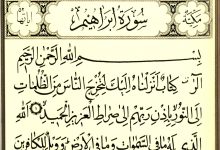 سورة ابراهيم
مكية
بسم الله الرحمن الرحيم
الر كتاب أنزلناه إليك لتخرج الناس من الظلمات
إلى النور بإذن ربهم إلى صراط العزيز الحميد
الذي له ما في السموات وما في الأرض وويل للكافرين